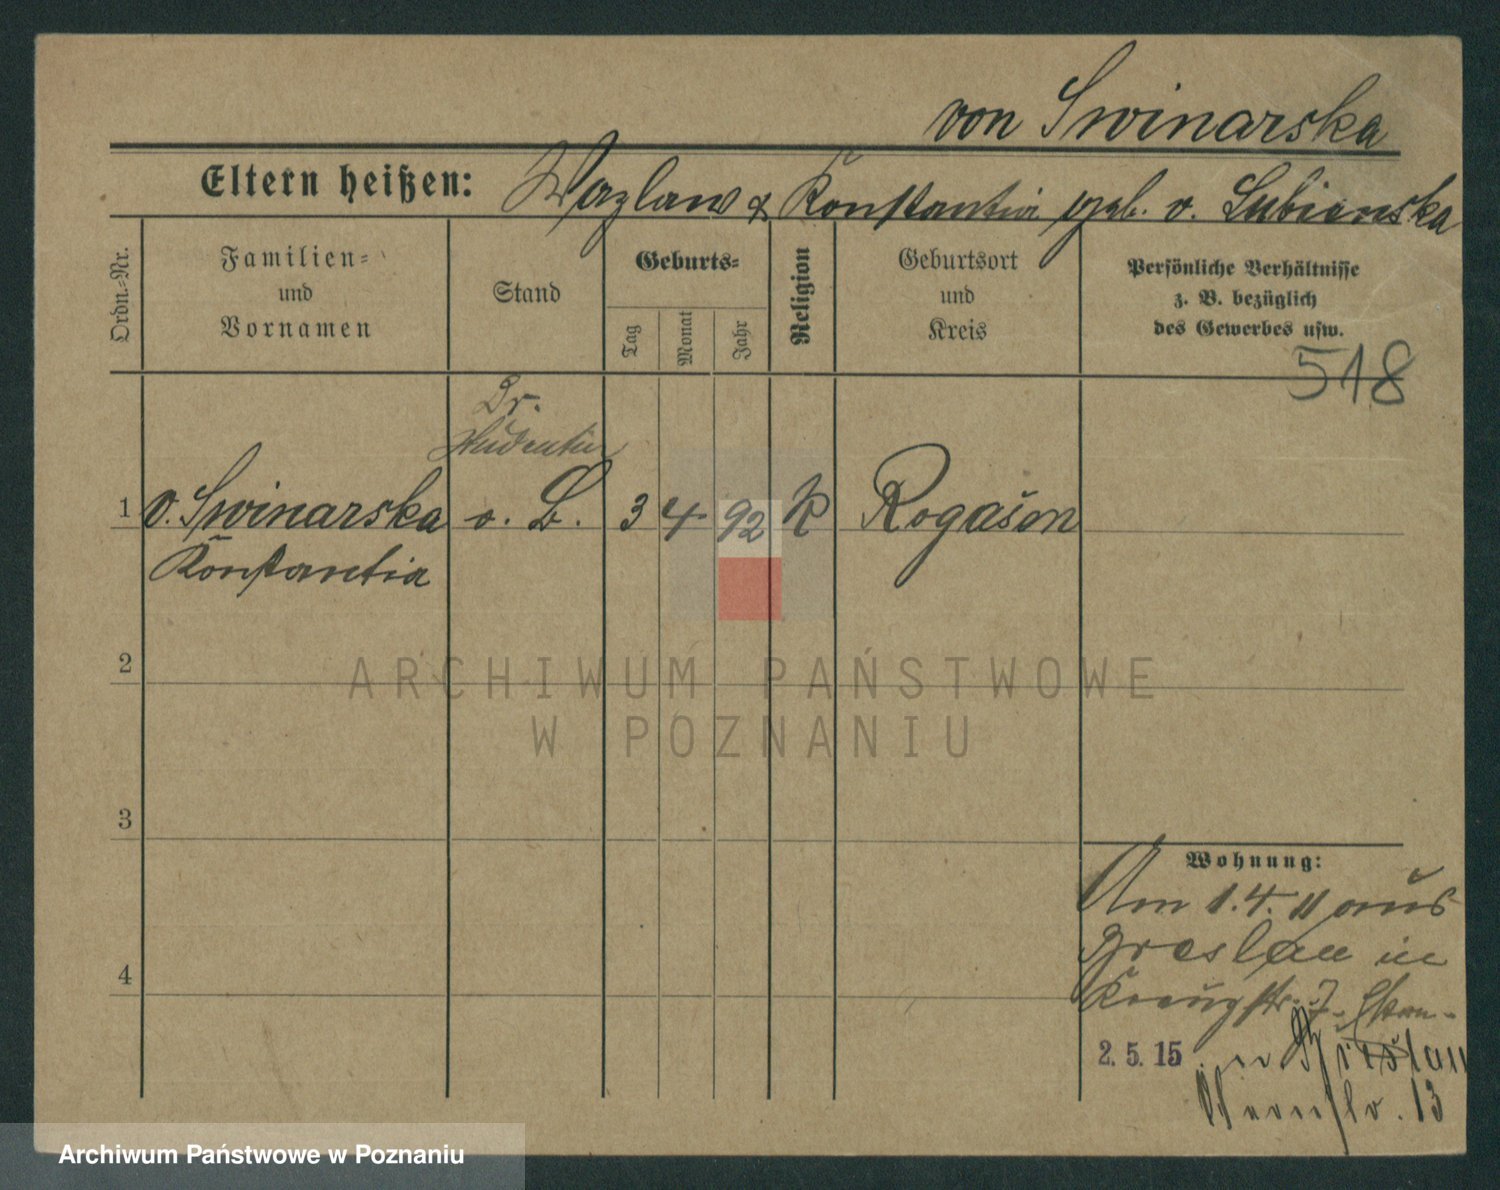 von Swinarska
Eltern heißen: Wazlaw & Konstantia geb. v. Lubienska
Ordn.-Nr.
Familien-
und
Vornamen
Stand
Geburts-
Tag
Monat
Jahr
Religion
Geburtsort
und
Kreis
Persönliche Verhältnisse
z. B. bezüglich
des Gewerbes usw.
518
Dr.
Studentin
1 v. Swinarska o. B. 3 4. 92 K Rogasen
Konstantia
2
ARCHIWUM PAŃSTWOWE
W POZNANIU
3
4
Wohnung:
Am 1.4.11 aus
Breslau in
2.5.15 in Breslau
13
Archiwum Państwowe w Poznaniu